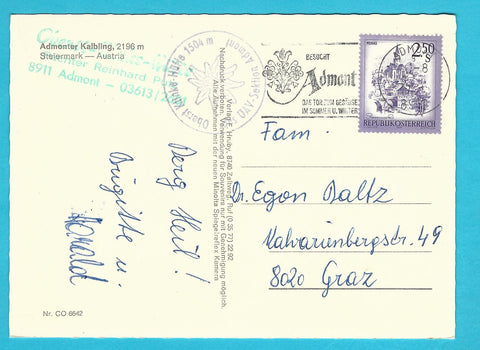 Admonter Kalbling, 2196 m
Steiermark — Austria
Reinhard
8911 Admont - 03613/
Oberst Klinke Hütte 1504 m
Sektion Admont
BESUCHT
Admont
DAS TOR ZUM GESÄUSE
IM SOMMER U. WINTER
2.50
REPUBLIK ÖSTERREICH
Verlag: Hruby, 8740 Zeltweg, Ruf (0 35 77) 22 92
Nachdruck verboten. Verwendung für Souvenirs nur mit Genehmigung möglich.
Alle Aufnahmen mit der neuen Minolta Spiegelreflex Kamera
Berg Heil!
Brigitte u.
Harald
Fam.
Dr. Egon Baltz
Kalvarienbergstr. 49
8020 Graz
Nr. CO 6642